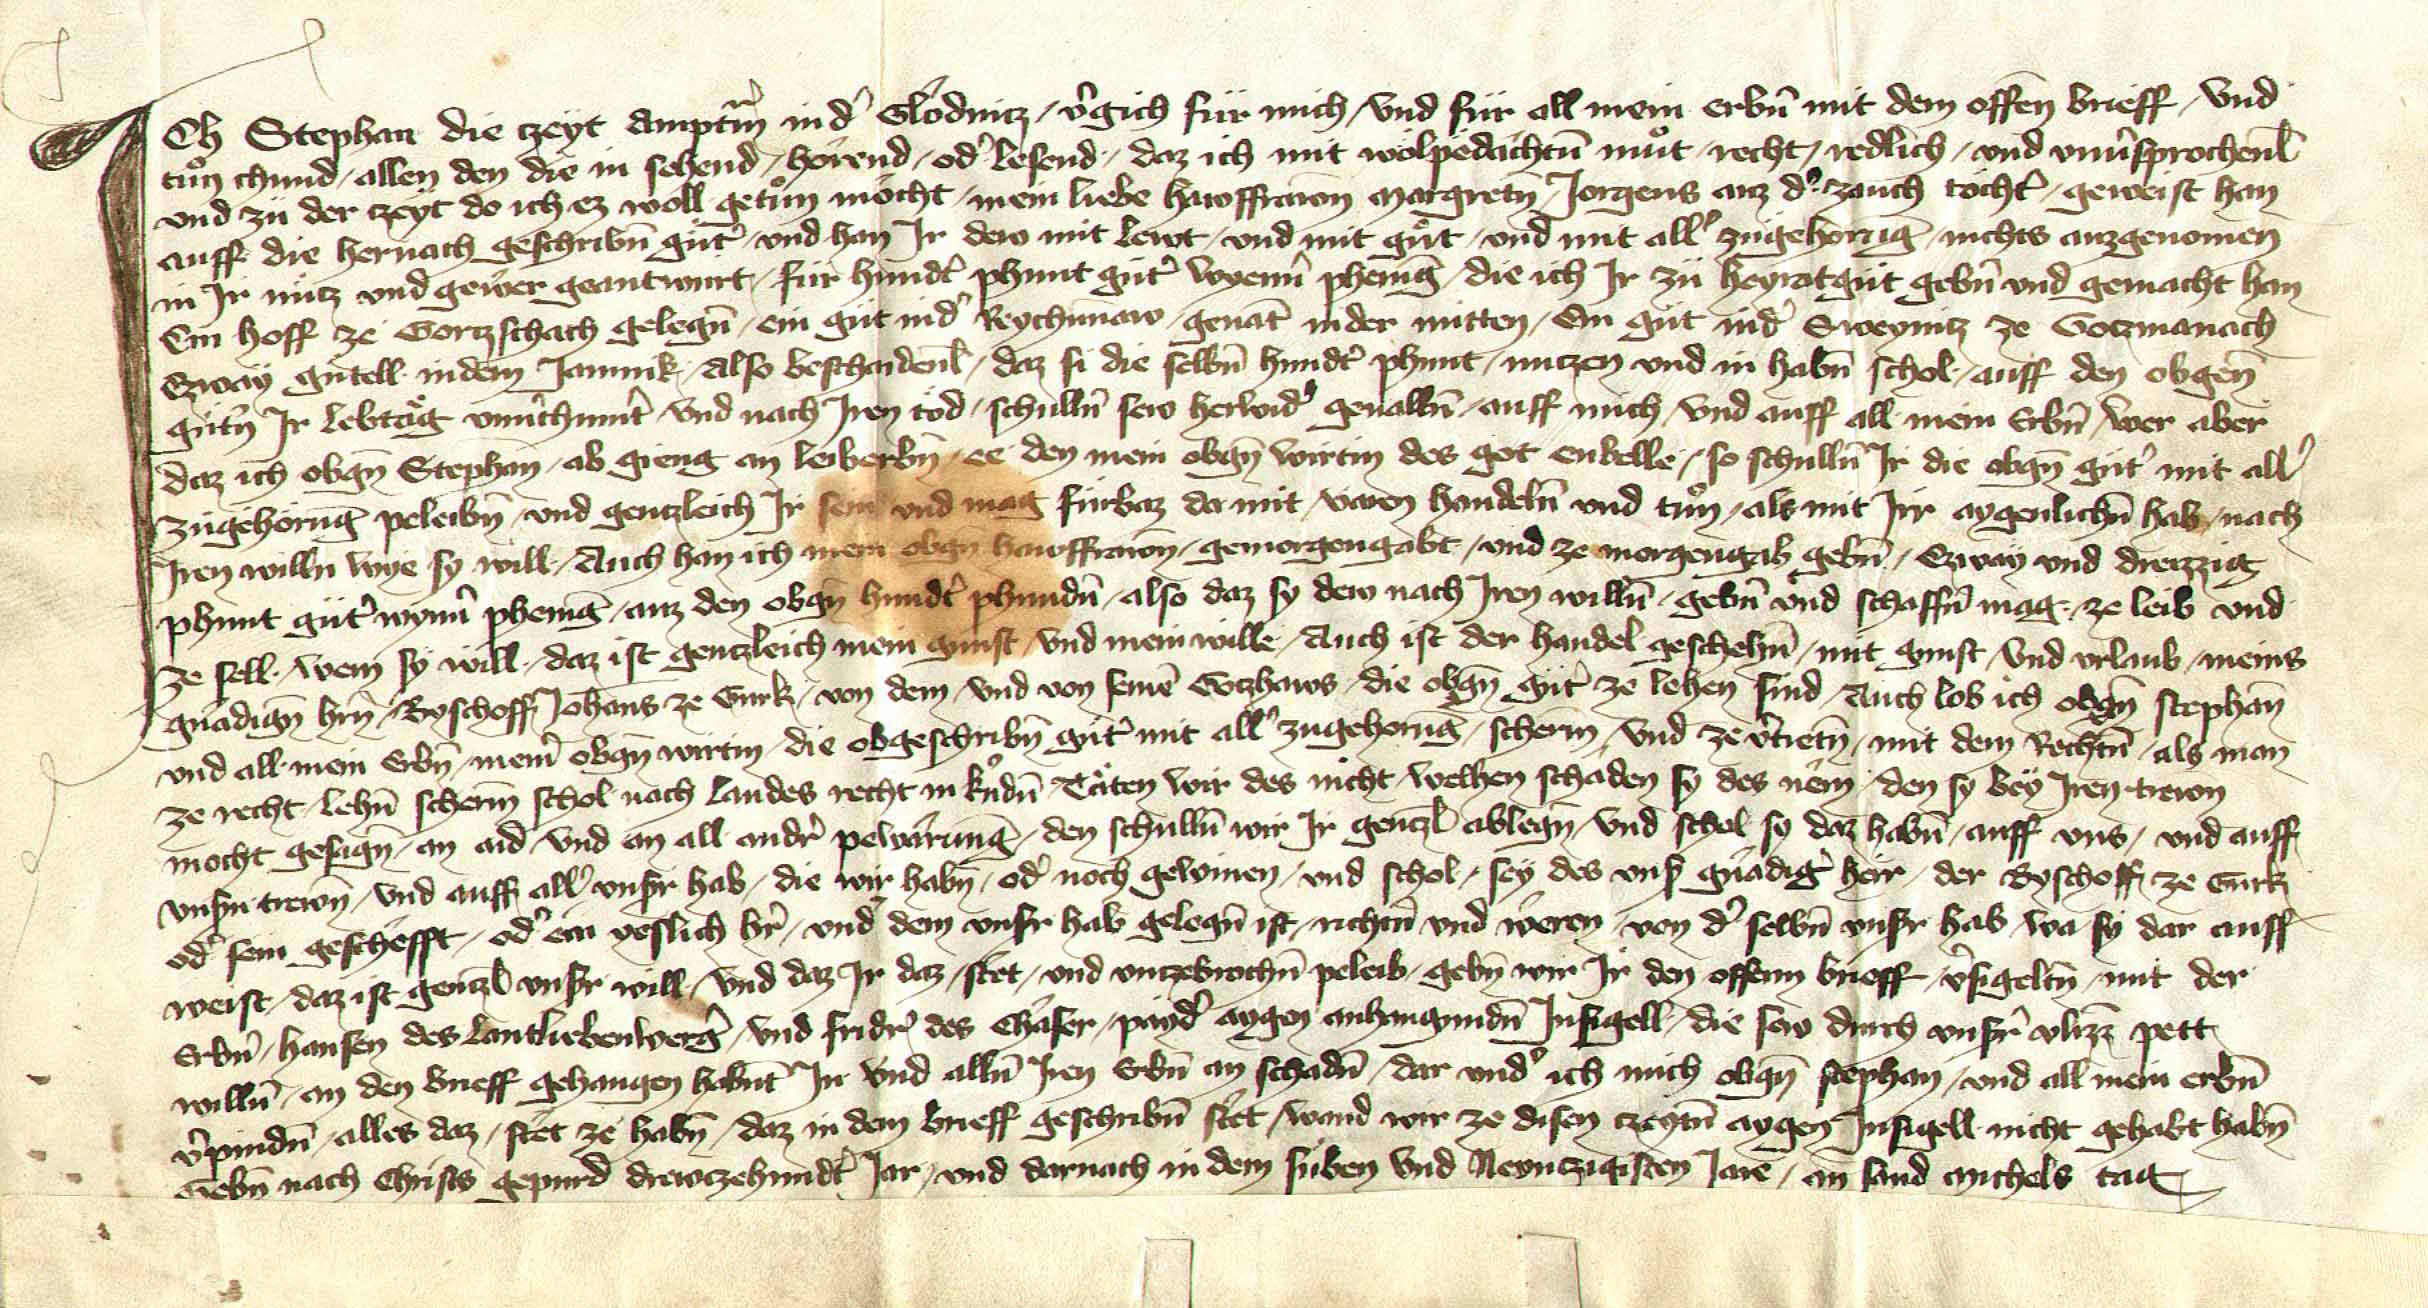 ICh Stephan die czeyt Amptm̄ in d' Glödnicz / v'gich für mich / vnd für all mein erbn̄ mit dem offen brieff / vnd
tůn chund / allen den die in sehend / hörend / od' lesend / daz ich mit wolpedachtm̄ můt / recht / redlich / vnd vnu'sprochenl̄
vnd zü der czeyt do ich ez woll getůn möcht / mein liebe hawsfrawn Margretn̄ / Jorgens auz d' zauch tocht' / geweist han
auff die hernach geschribn̄ güt' / vnd han Ir dew mit lewt / vnd mit gůt / vnd mit all' zůgehörūg / nichts auzgenomen
in Ir nütz vnd gewer geantwürt / für hundt' phunt güt' wyenn' phenīg / die ich Ir zü heyratgüt gebn̄ vnd gemacht han
Ein hoff ze Gortzschach gelegn̄ / ein güt in d' Reychenaw / genāt in der mitten / Ein güt in d' Sweynicz ze Gotzmanach
Czway gütell in dem Jaunik / Also beschaidenl̄ / daz si die selbn̄ hundt' phunt / nutzen vnd in habn̄ schol / auff den obgen̄
gütn̄ Ir lebtäg vnu'chumt' / vnd nach Iren töd / schulln̄ sew herwid' geualln̄ / auff mich / vnd auff all mein Erbn̄ / wer aber
daz ich obgn̄ Stephan / ab gieng an leiberbn̄ / ee den mein obgn̄ wirtin des got enbelle / so schulln̄ Ir die obgn̄ güt' mit all'
zügehörūg peleibn̄ / vnd gentzleich Ir sein vnd mag fürbaz da mit / varen handeln̄ vnd tůn / als mit Irr aygenlichn̄ hab / nach
Iren willn wye sy will / Auch han ich mein obgn̄ hawsfrawn / gemorgengabt / vnd ze morgengab gebn̄ / Czway vnd dreizzig
phunt güt' wynn' phenīg / auz den obgn̄ hundt' phundn̄ / also daz sy dew nach Iren willn̄ / gebn̄ vnd schaffn̄ mag / ze leib vnd
ze sell / wem sy will / daz ist gentzleich mein gunst / vnd mein wille / Auch ist der handel geschehn̄ / mit gunst / vnd vrlaub / meins
gnädign̄ hrn̄ / Byschoff Johans ze Gurk / von dem / vnd von seinē Gotzhaws / die obgn̄ güt' ze lehen sind / Auch lob ich obgn̄ stephan
vnd all mein Erbn̄ / mein' obgn̄ wirtin / die obgeschribn̄ güt' mit all' zugehorūg / scherm̄ / vnd ze v'tretn̄ / mit dem Rechtn̄ / als man
ze recht / lehn̄ scherm̄ schol / nach landes recht in k'ndn̄ / Täten wir des nicht / welhen schaden sy des nem / den sy bey Iren trewn
mocht gesagn̄ / an aid / vnd an all andr' pewärung / den schulln̄ wir Ir gentzl̄ ablegn̄ / vnd schol sy daz habn̄ / auff vns / vnd auff
vnsn̄ trewn̄ / vnd auff all' vnsr hab / die wir habn̄ / od' noch gewinen / vnd schol / sey des vns' gnädig' herr / der Byschoff ze Gurk
od' sein geschefft / od' ein yeslich hr' / vnd' dem vnsr hab gelegn̄ ist / richtn̄ vnd weren / von d' selbn̄ vnsr hab / wa sy dar auff
weist / daz ist gentzl̄ vnsr will / vnd daz Ir daz / stet / vnd vnczebrochn̄ peleib / gebn̄ wir Ir den offenn brieff / v'sigeltn̄ / mit der
Erbn̄ / hansen des Lantliebenberg' / vnd fridr' des Chäser / payd' aygen anhangundn̄ Insigell / die sew durch vnsr' vlizz pett
willn̄ / an den brieff gehangen habnt / In vnd alln̄ Iren Erbn̄ an schadn̄ / dar vnd' ich mich obgn̄ Stephan / vnd all mein erbn̄
v'pindn̄ / alles daz / stet ze habn̄ / daz in dem brieff geschribn̄ stet / wand wir ze disen czeytn̄ aygen Insigell nicht gehabt habn̄
Gebn̄ nach Christs gepurd drewczehundt' Jar / vnd darnach in dem siben vnd Neynczigisten Jare / an sand Michels tag